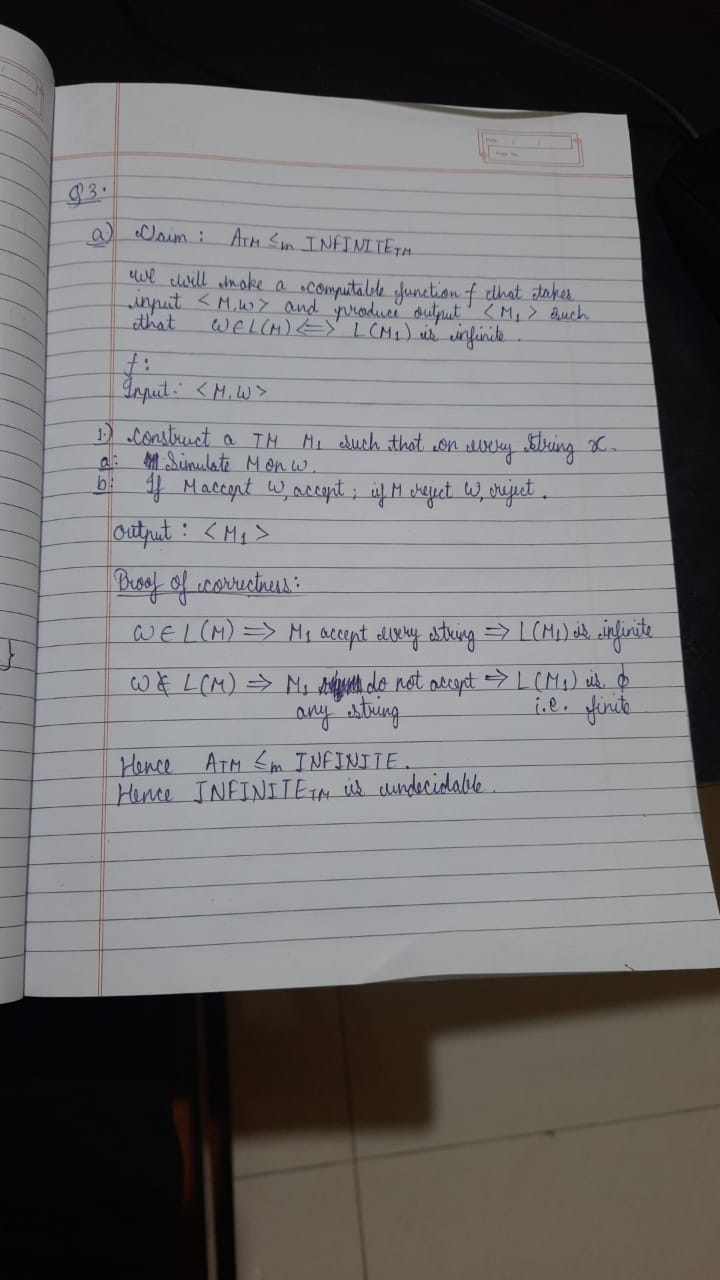 Q3.
a) Claim : ATM ≤m INFINITETM
we will make a computable function f that takes
input <M,W> and produce output <M1> such
that W∈L(M) <=> L(M1) is infinite.
f:
Input: <M,W>
1.) Construct a TM M1 such that on every string x.
a: Simulate M on W.
b: If M accept W, accept ; if M reject W, reject.
output : <M1>
Proof of correctness:
W ∈ L(M) => M1 accept every string => L(M1) is infinite
W ∉ L(M) => M1 do not accept => L(M1) is ϕ
any string i.e. finite
Hence ATM ≤m INFINITE.
Hence INFINITETM is undecidable.
}